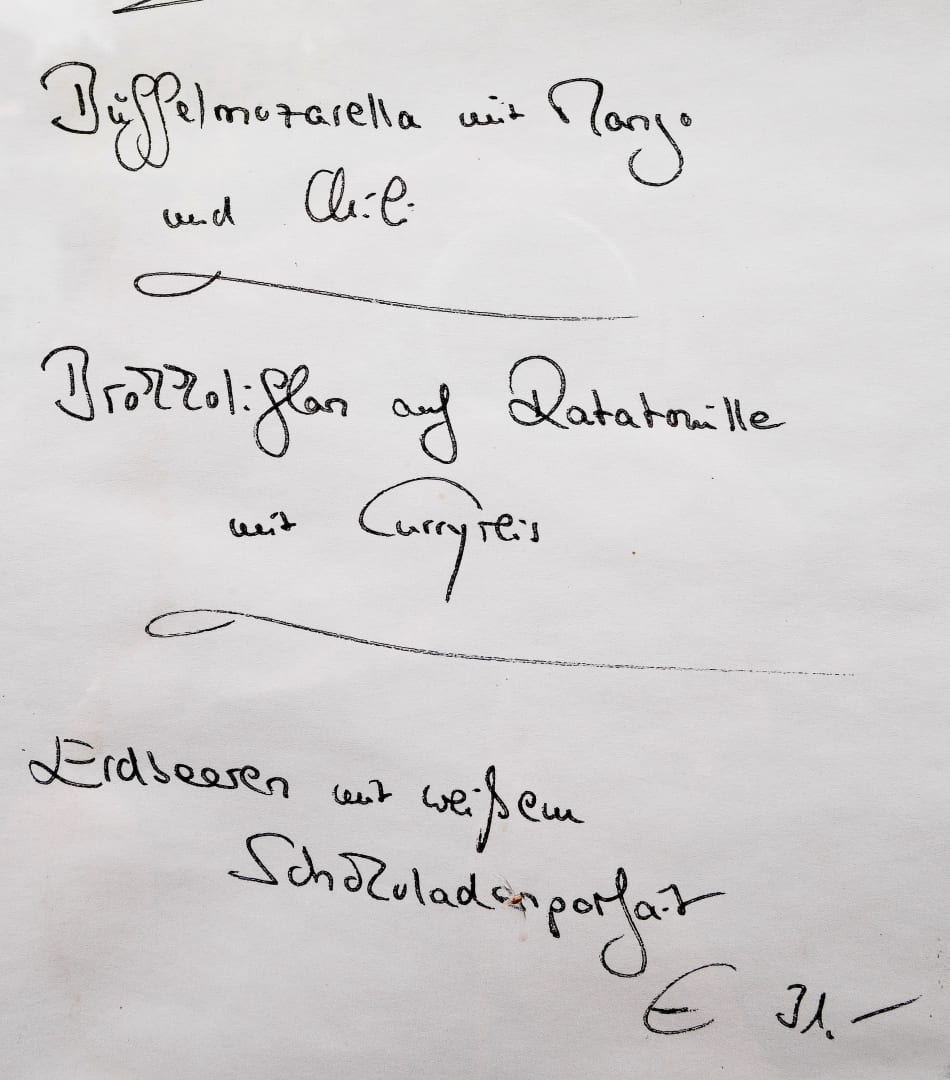 Büffelmozarella mit Mango
und Chili
Brokkoliflan auf Ratatouille
mit Curryreis
Erdbeeren mit weißem
Schokoladenparfait
€ 31.–